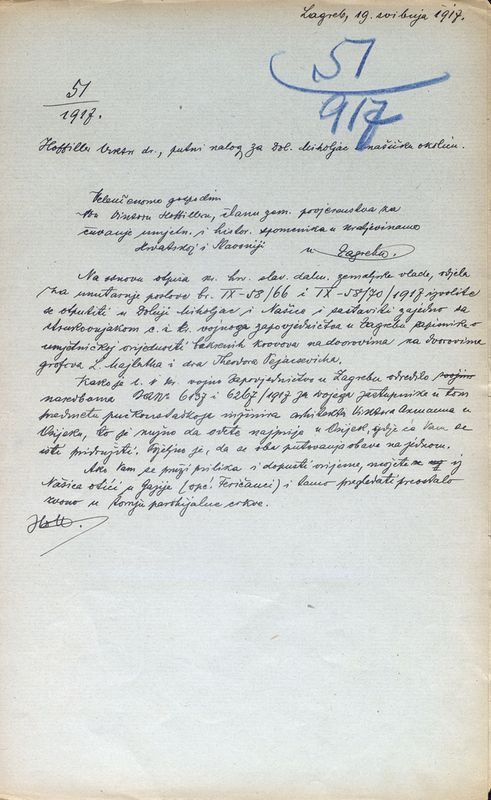 Zagreb, 19. svibnja 1917.
51
917
51
1917.
Hoffiller Viktor dr., putni nalog za Dol. Miholjac i našičku okolicu.
Veleučenomu gospodinu
dru Viktoru Hoffilleru, članu zem. povjerenstva za
čuvanje umjetn. i histor. spomenika u kraljevinama
Hrvatskoj i Slavoniji u Zagrebu.
Na osnovu otpisa kr. hrv. slav. dalm. zemaljske vlade, odjela
za unutarnje poslove br. IX-58/66 i IX-58/70/1917 izvolite
se otputiti u Dolnji Miholjac i Našice i sastaviti zajedno sa
strukovnjakom c. i kr. vojnoga zapovjedničtva u Zagrebu zapisnik o
umjetničkoj vrijednosti bakrenih krovova na dvorovima
grofova L. Majlatha i dra Theodora Pejacsevicha.
Kako je c. i kr. vojno zapovjedničtvo u Zagrebu odredilo
naredbama 6157 i 6267/1917 za svojega zastupnika u tom
predmetu pučkoustaškoga inžinira arhitekta Viktora Axmanna u
Osijeku, to je nužno da odete najprije u Osijek, gdje će Vam se
isti pridružiti. Poželjno je, da se oba putovanja obave na jednom.
Ako Vam se pruži prilika i dopusti vrijeme, možete iz
Našica otići u Gazije (opć. Feričanci) i tamo pregledati preostalo
zvono u tornju parohijalne crkve.